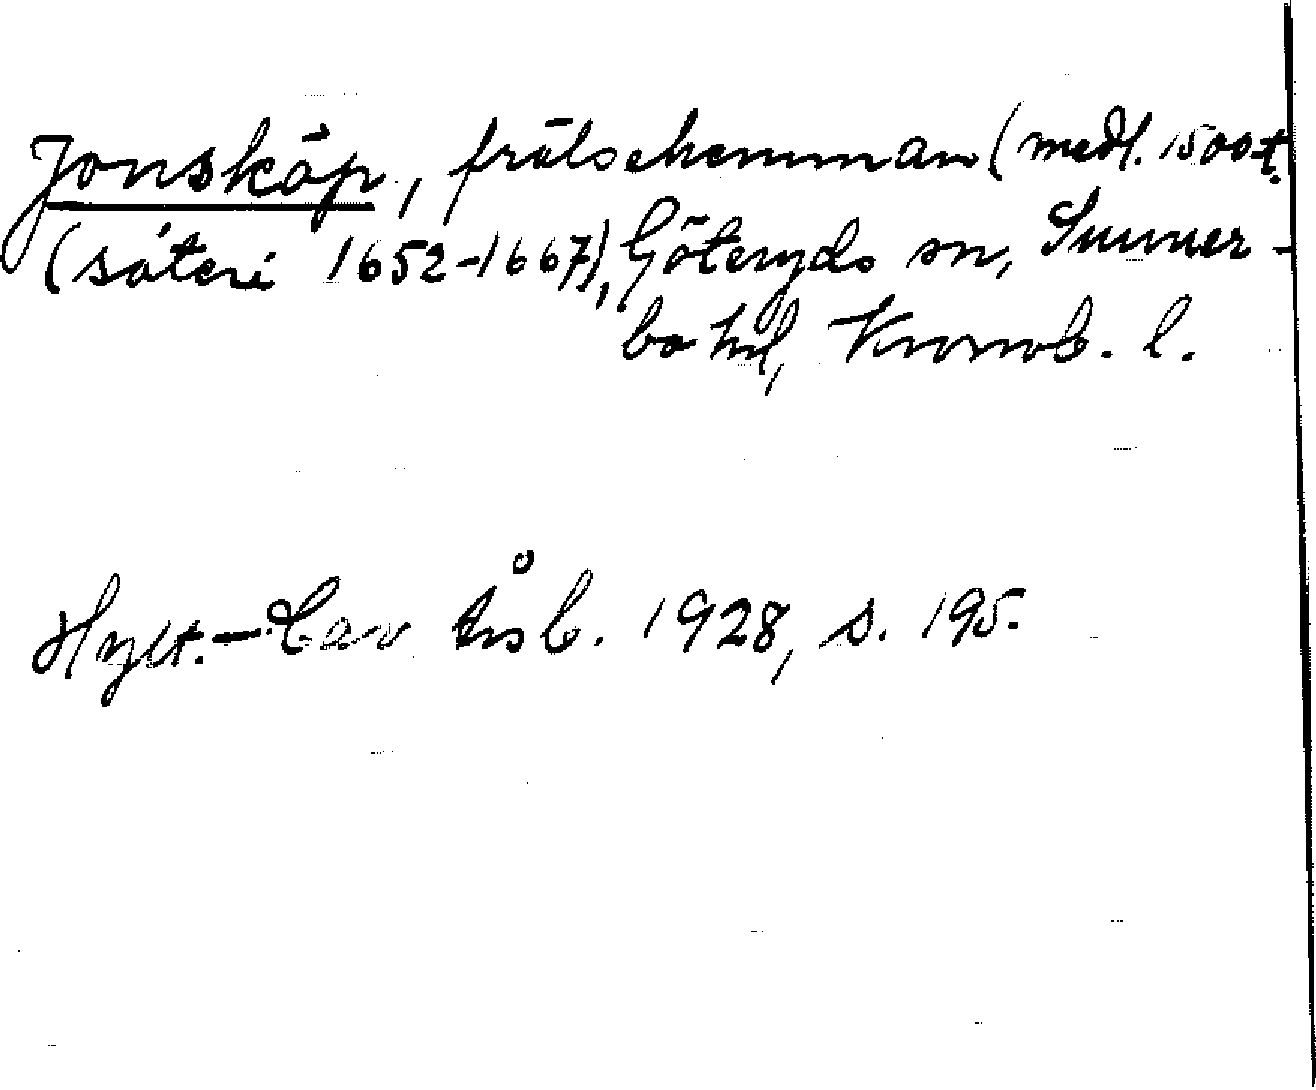 Jonsköp, frälsehemman (medl. 1500-t.
(säteri 1652-1667), Göteryds sn, Sunner-
bo hd, Kronob. l.
Hylt.-Cav årsb. 1928, s. 195.